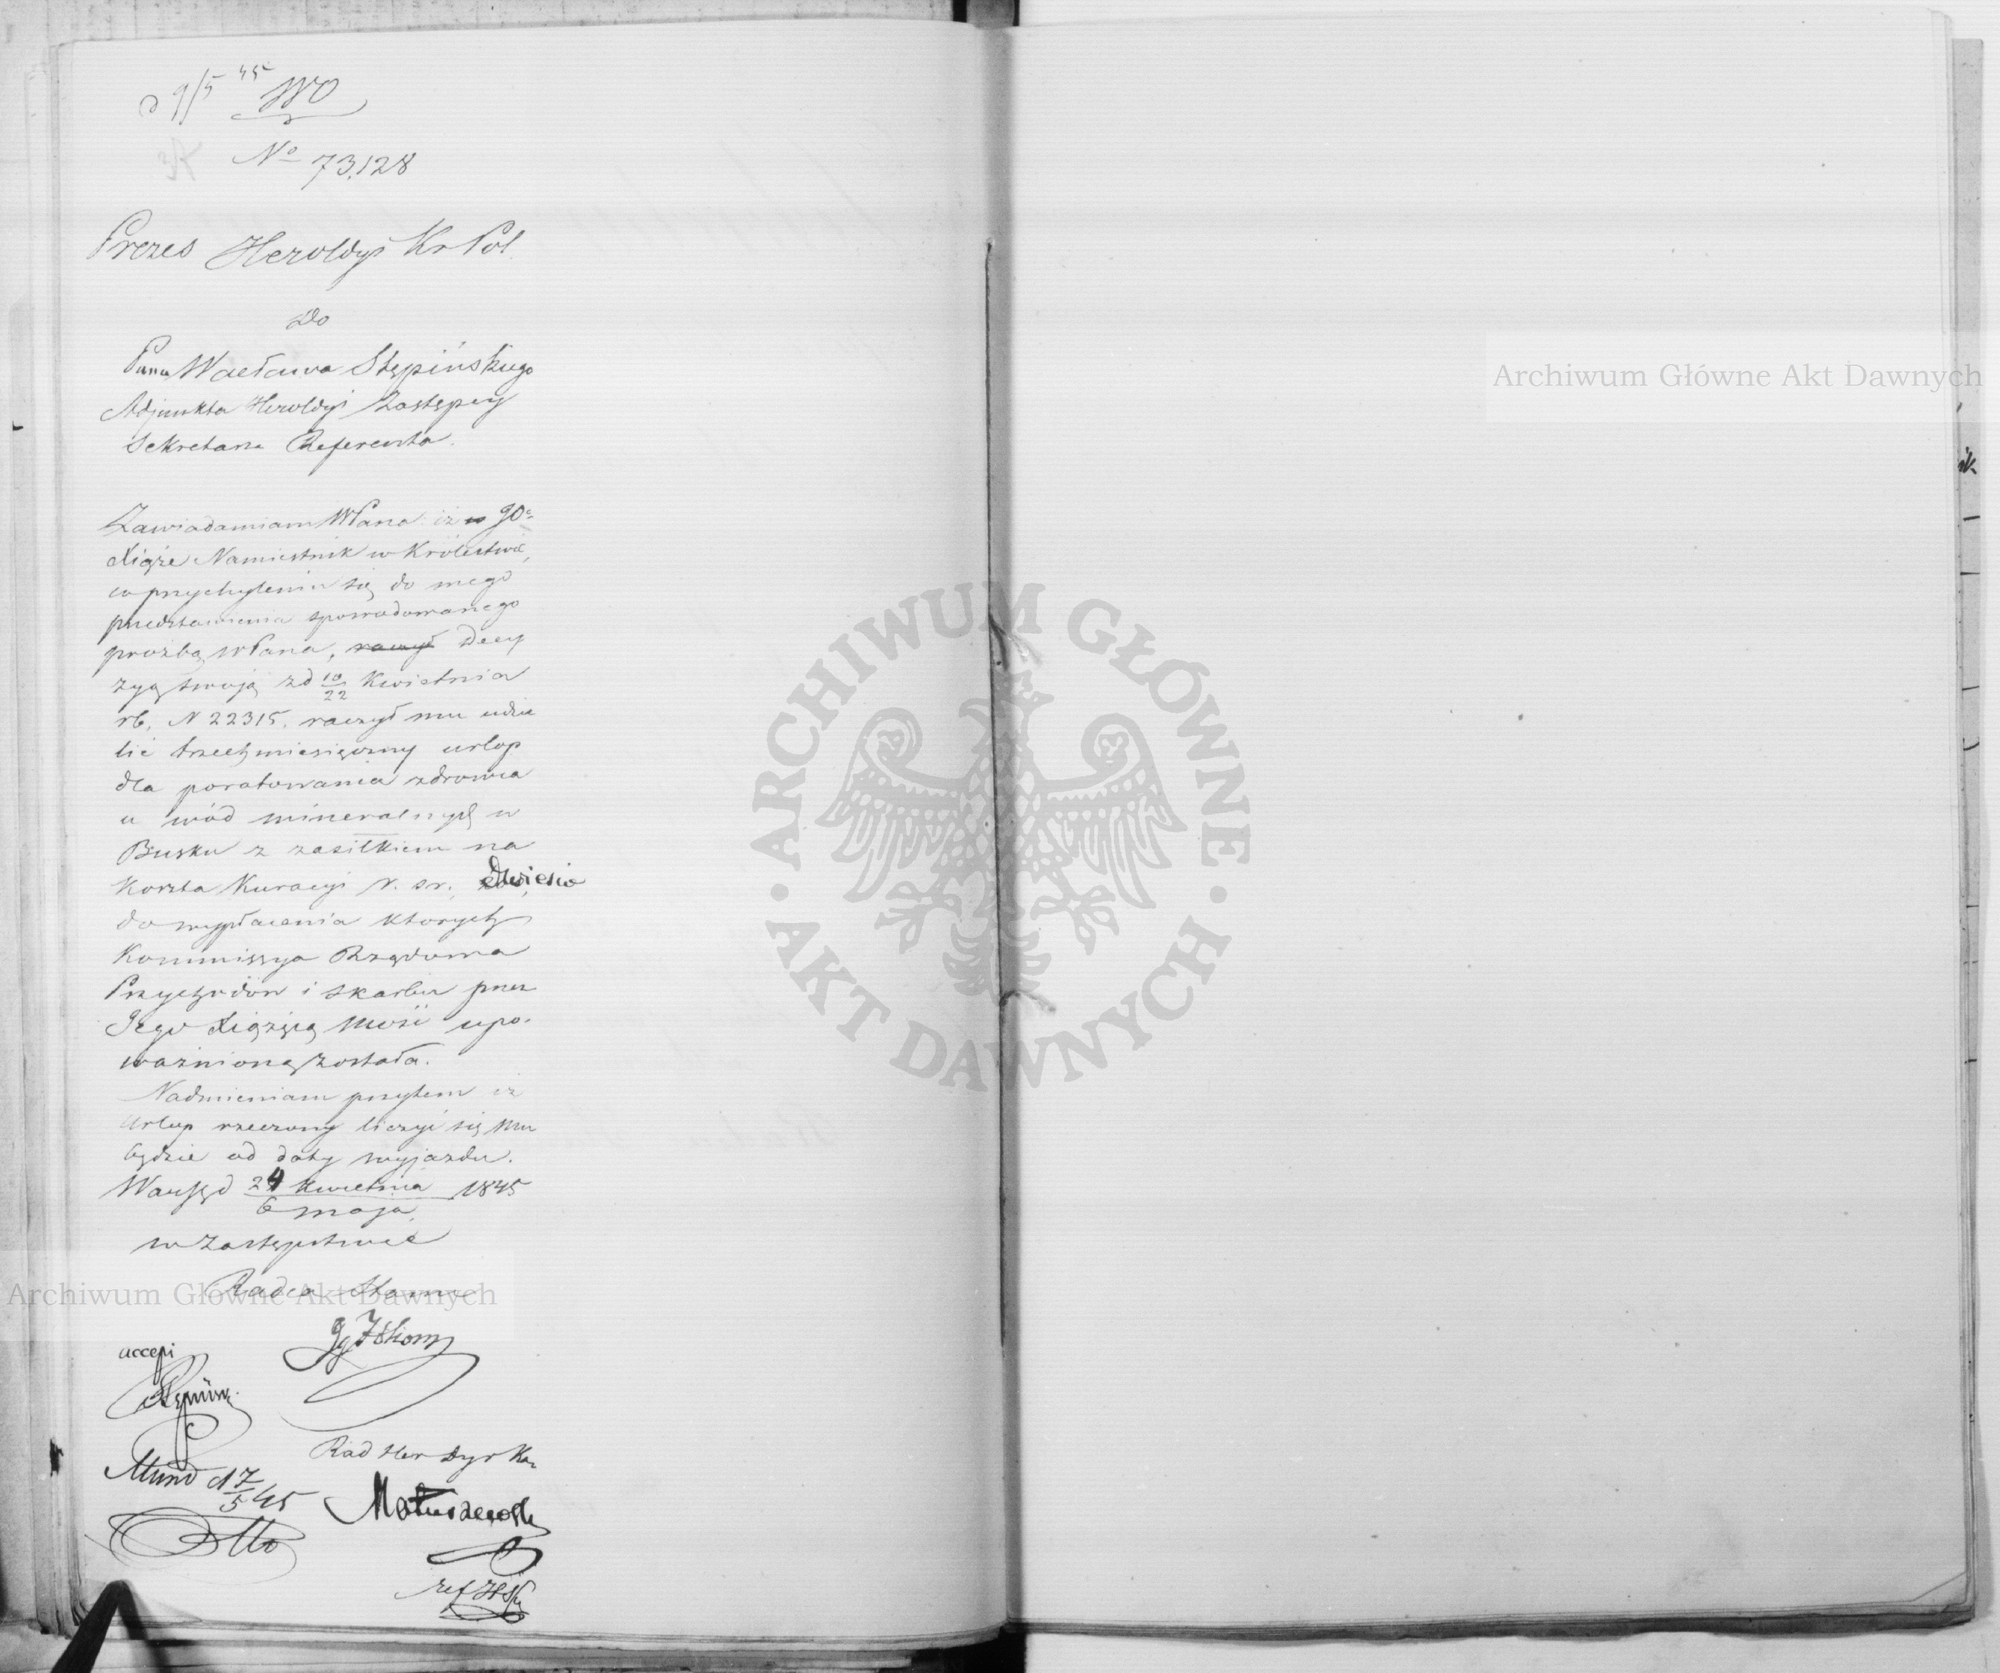 d 9/5 45 WO
Nº 73,128
Prezes Heroldyi Kr Pol.
Do
Pana Wacława Stępińskiego
Adjunkta Heroldyi Zastępcy
Sekretarza Referenta.
Zawiadamiam WPana iż JO:
Xiąże Namiestnik w Królestwie,
w przychyleniu się do mego
przedstawienia spowodowanego
prozbą WPana, raczył Decy
zyą swoją z d 10/22 Kwietnia
rb, N 22315. raczył mu udzie
lić trzechmiesięczny urlop
dla poratowania zdrowia
u wód mineralnych w
Busku z zasiłkiem na
Koszta Kuracyi r. sr. dwieście
do wypłacenia ktorych
Kommissya Rządowa
Przychodów i Skarbu przez
Jego Xiążęcą Mość upo-
ważnioną została.
Nadmieniam przytem iż
Urlop rzeczony liczyć się mu
będzie od daty wyjazdu.
Warsz d 24 Kwietnia / 6 maja 1845
w Zastępstwie
Radca Stanu
accepi
Stępiński
Rad Her Dyr Kan
Mund d 7/5 45
Matuszewski
Otto
ref
Archiwum Główne Akt Dawnych
Archiwum Główne Akt Dawnych
· ARCHIWUM GŁÓWNE · AKT DAWNYCH